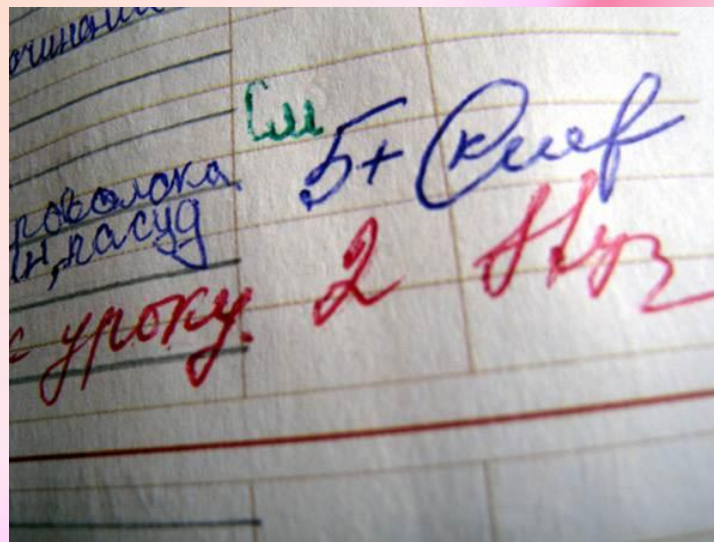 очинение
См
5+
роволока
н, пасуд
к уроку. 2